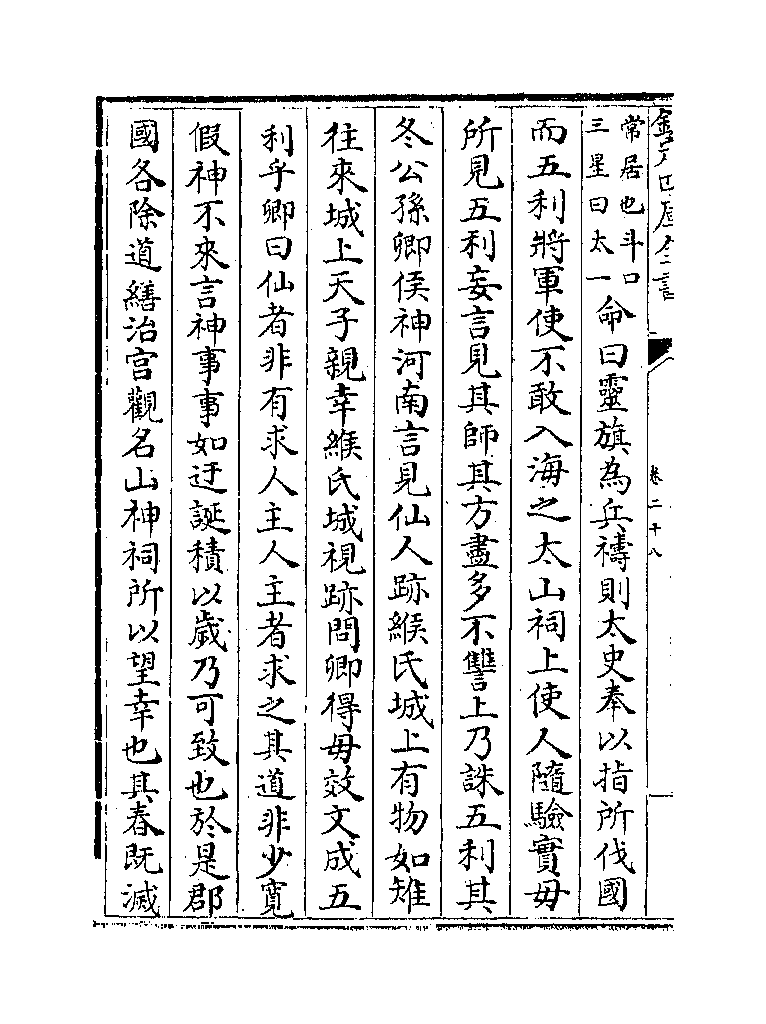 欽定四庫全書
卷二十八
常居也斗口
三星曰太一
命曰靈旗為兵禱則太史奉以指所伐國
而五利將軍使不敢入海之太山祠上使人隨驗實毋
所見五利妄言見其師其方盡多不讐上乃誅五利其
冬公孫卿侯神河南言見仙人跡緱氏城上有物如雉
往來城上天子親幸緱氏城視跡問卿得毋效文成五
利乎卿曰仙者非有求人主人主者求之其道非少寛
假神不來言神事事如迂誕積以歲乃可致也於是郡
國各除道繕治宫觀名山神祠所以望幸也其春既滅